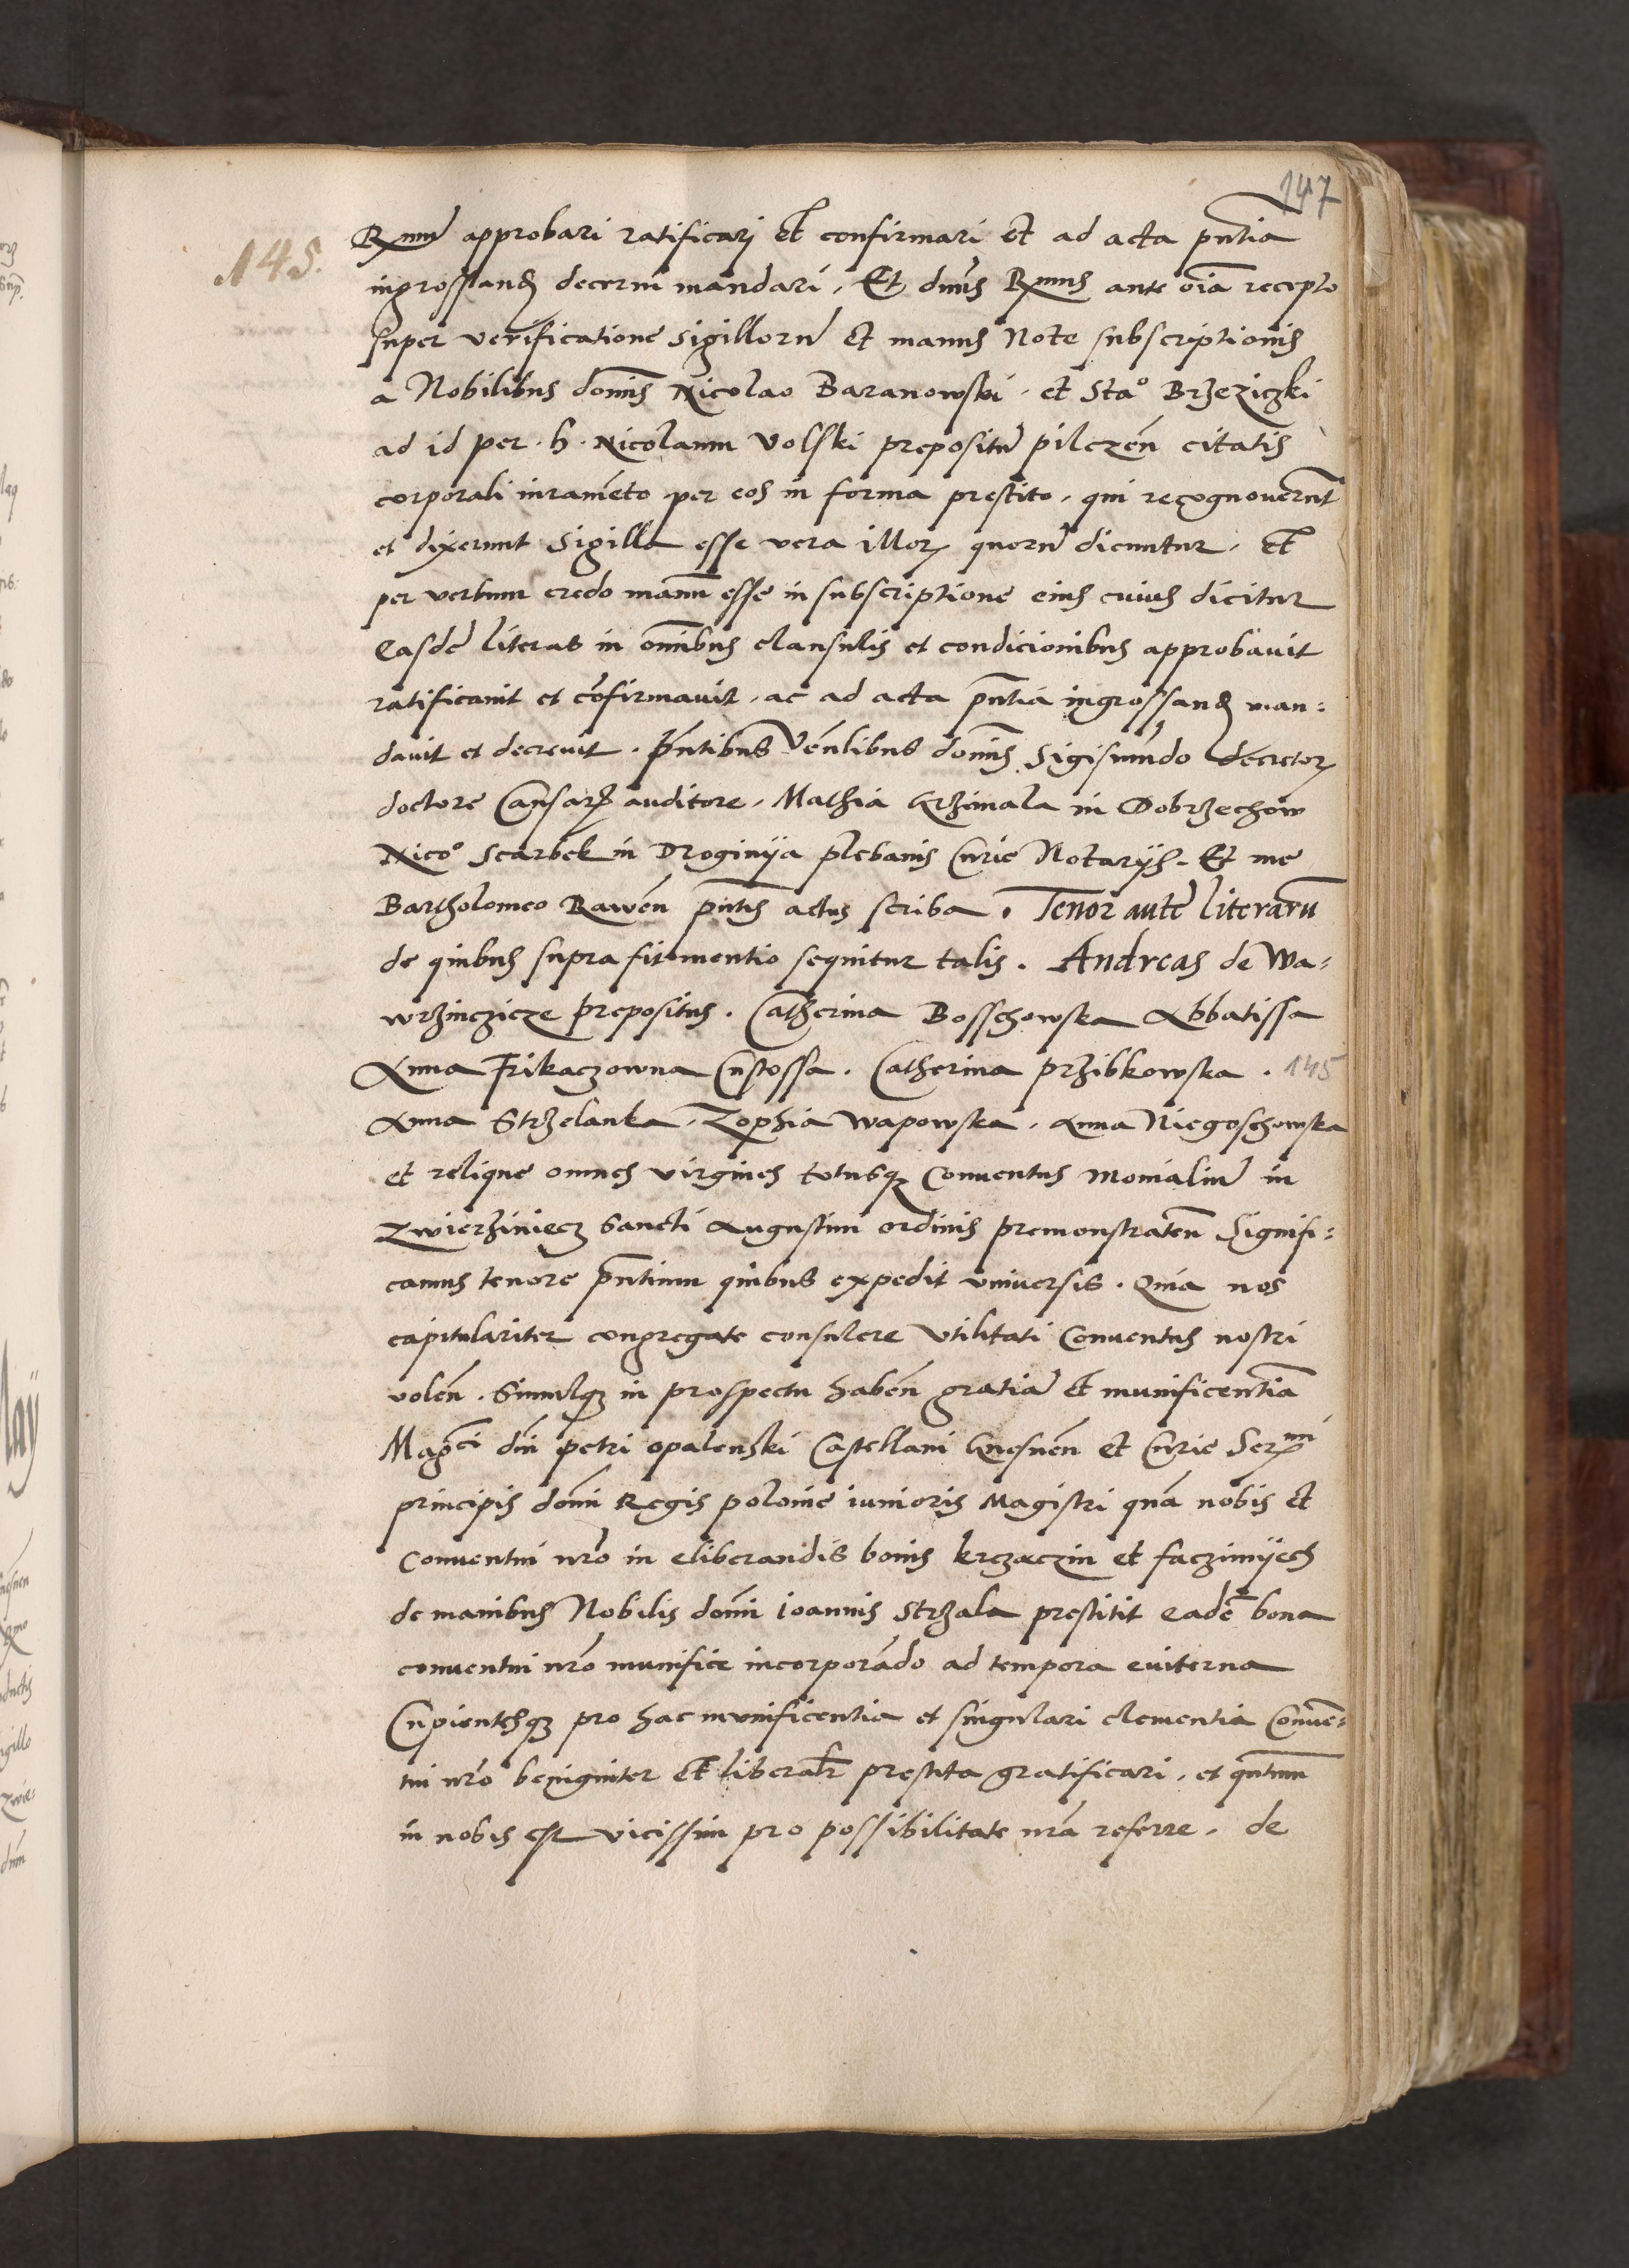 147
145.
Rxmu͂ approbari ratificari et confirmari et ad acta pn̄tia
ingrossand decerni mandari, Et dn̄us Rxmus ante oīa recepto
super verificatione sigilloru͂ et manus Note subscriptionis
a Nobilibus domīs Nicolao Baranowski, et Stao Brzeziczki
ad id per. h. Nicolaum Volski prepositu͂ pilczen̄ citatis
corporali iuramēto per eos in forma prestito, qui recognouerūt
et dixerunt Sigilla esse vera illorꝝ quoru͂ dicuntur, Et
per verbum credo manū esse in subscriptione eius cuius dicitur
Easdē literas in om̄ibus clausulis et condicionibus approbauit
ratificauit et cōfirmauit, ac ad acta pn̄tia ingrossand man:
dauit et decreuit. pn̄tibus Ven̄libus dom̄is Sigismūdo decretorꝝ
doctore Causarꝝ auditore, Mathia Grzimala in Dobrzechow
Nico° Scarbek in Droginya plebanis Curie Notarijs. Et me
Bartholomeo Rawen̄ pn̄tis actus scriba. Tenor autē literarū
de quibus supra fit mentio sequitur talis. Andreas de Wa:
wrzinczicze prepositus. Catherina Bosschowska Abbatissa
Anna Frikaczowna Custossa. Catherina przibkowska. 145
Anna Strzelanka, Zophia wapowska, Anna Niegoschowska
et relique omnes virgines totusqꝫ Conuentus monialiu͂ in
Zwierziniecz sancti Augustini ordinis premonstraten̄ Signifi:
camus tenore pn̄tium quibus expedit vniuersis. Quia nos
capitulariter congregate consulere vtilitati Conuentus nostri
volen̄. Simulqꝫ in prospectu haben̄ gratia͂ et munificentiā
Mag̃ci dn̄i petri opalenski Castellani Gnesnen̄ et Curie Serxmi
principis dom̄i Regis polonie iunioris Magistri quā nobis et
Conuentui nr̄o in eliberandis bonis krczeczin et faczimyech
de manibus Nobilis dom̄i ioannis Strzala prestitit eadē bona
conuentui nr̄o munifice incorporādo ad tempora euiterna
Cupientesqꝫ pro hac munificentia et singulari clementia Conuē:
tui nr̄o benigniter et liberalr̄ prestita gratificari, et qn̄tum
in nobis est vicissim pro possibilitate nr̄a referre, de